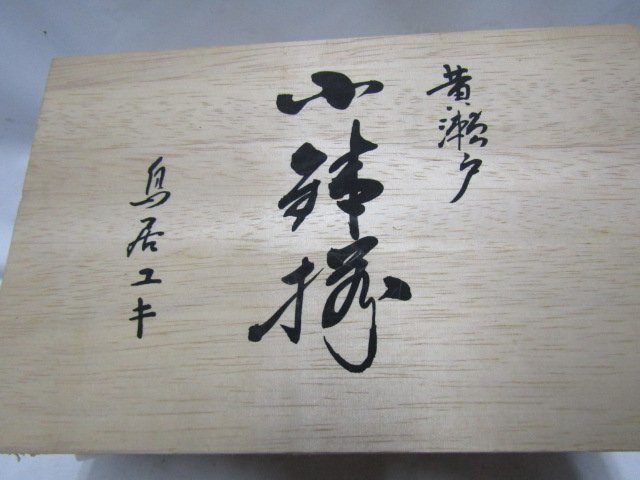 黄瀬戸
小鉢揃
鳥居ユキ